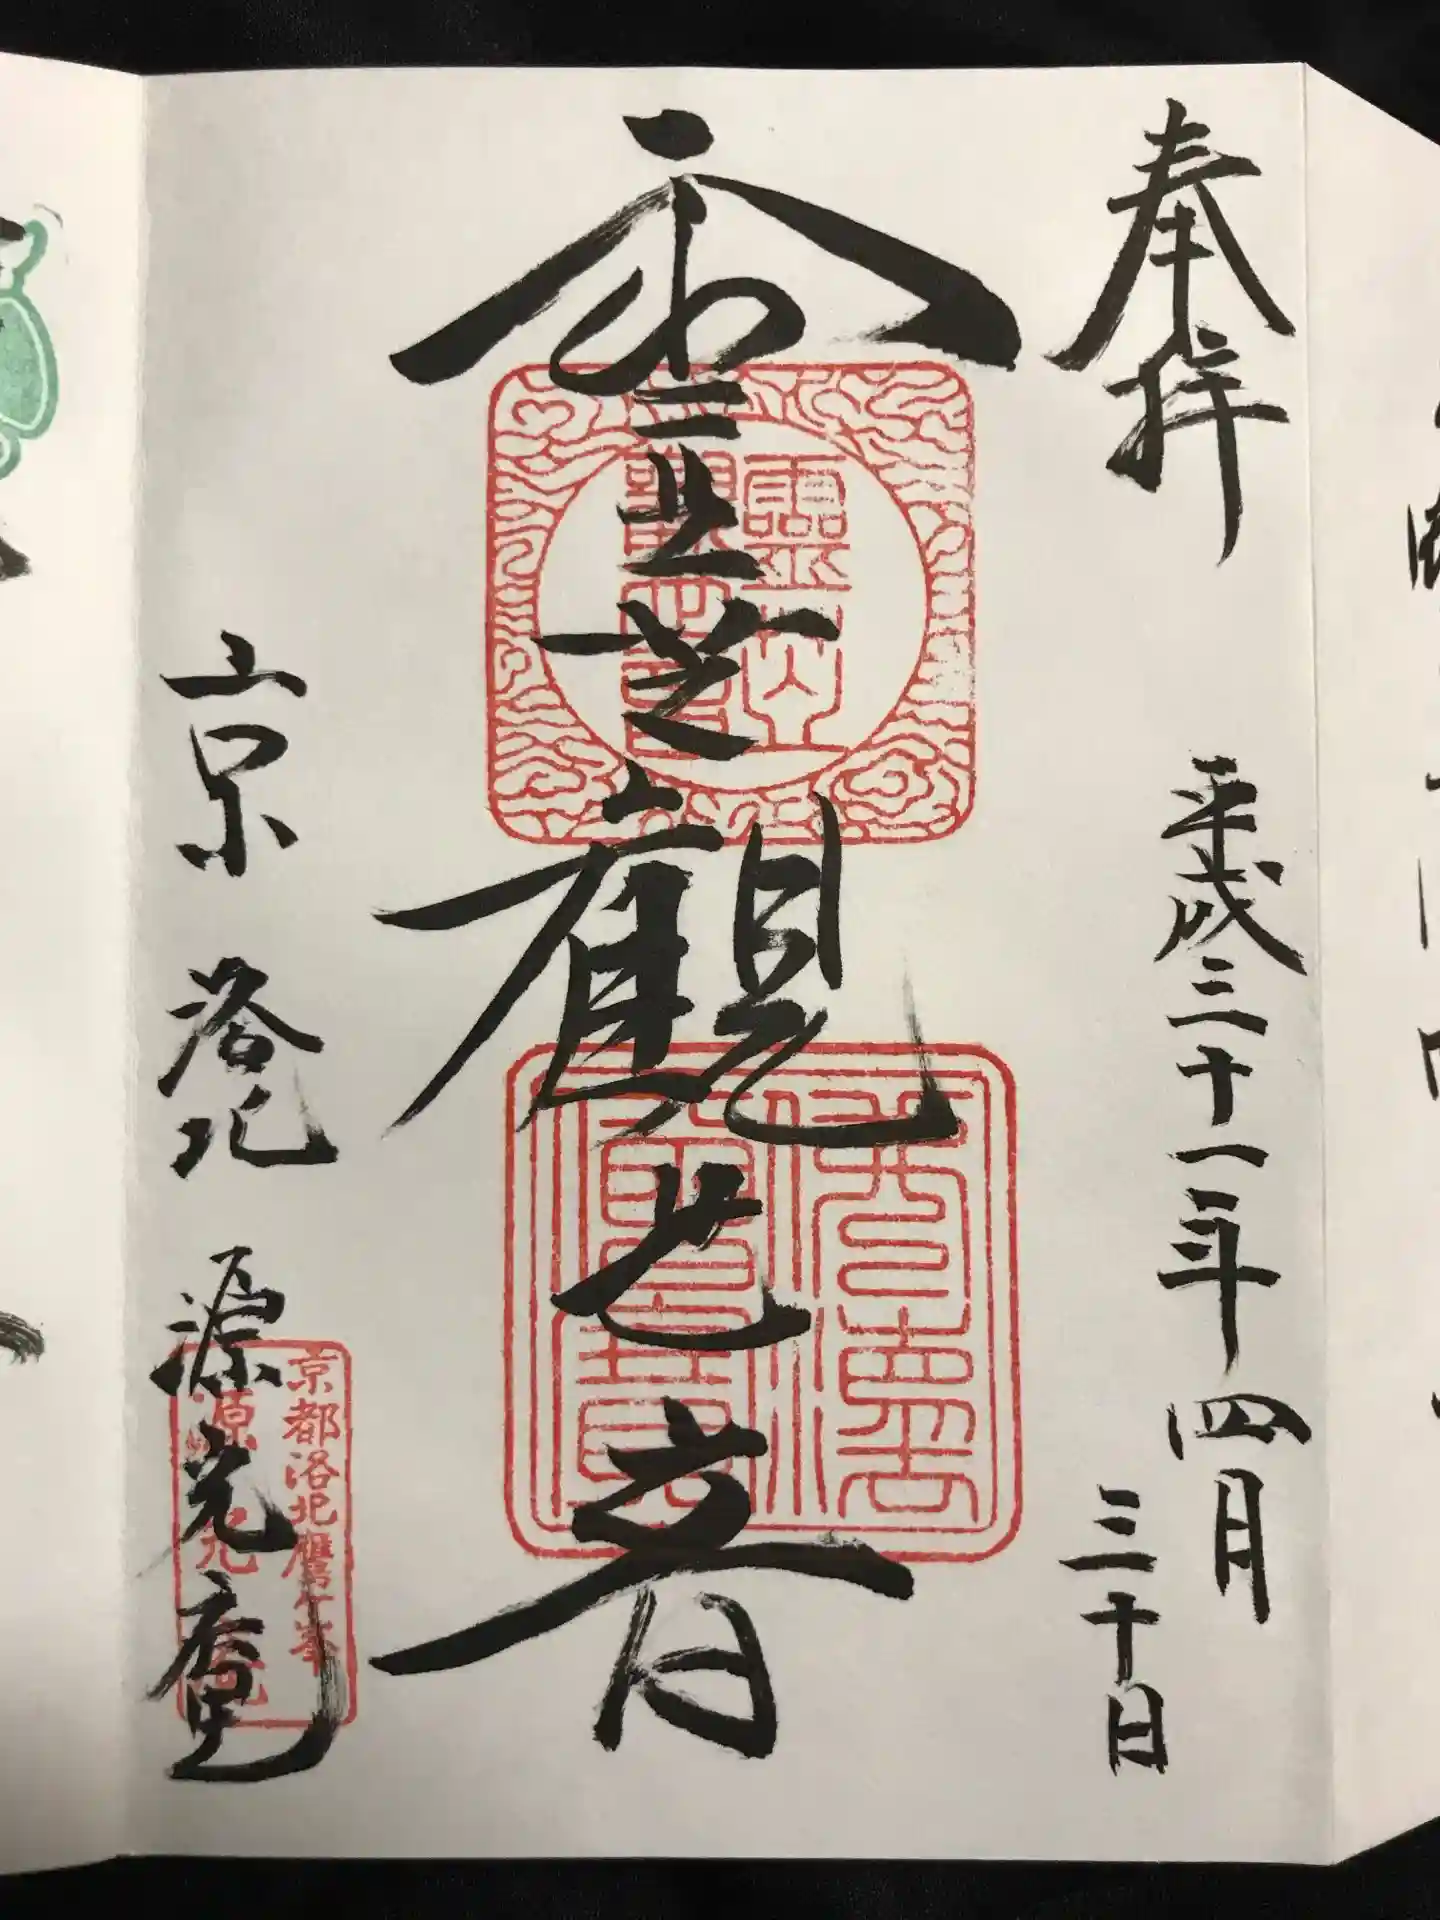 奉拝
平成三十一年四月
三十日
霊芝観世音
京 洛北 源光庵
京都洛北鷹ヶ峯
源光庵